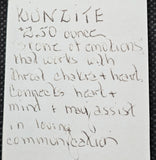 KUNZITE
$2.50 ounce
Stone of emotions
that works with
throat chakra & heart.
Connects heart &
mind & may assist
in loving
communication